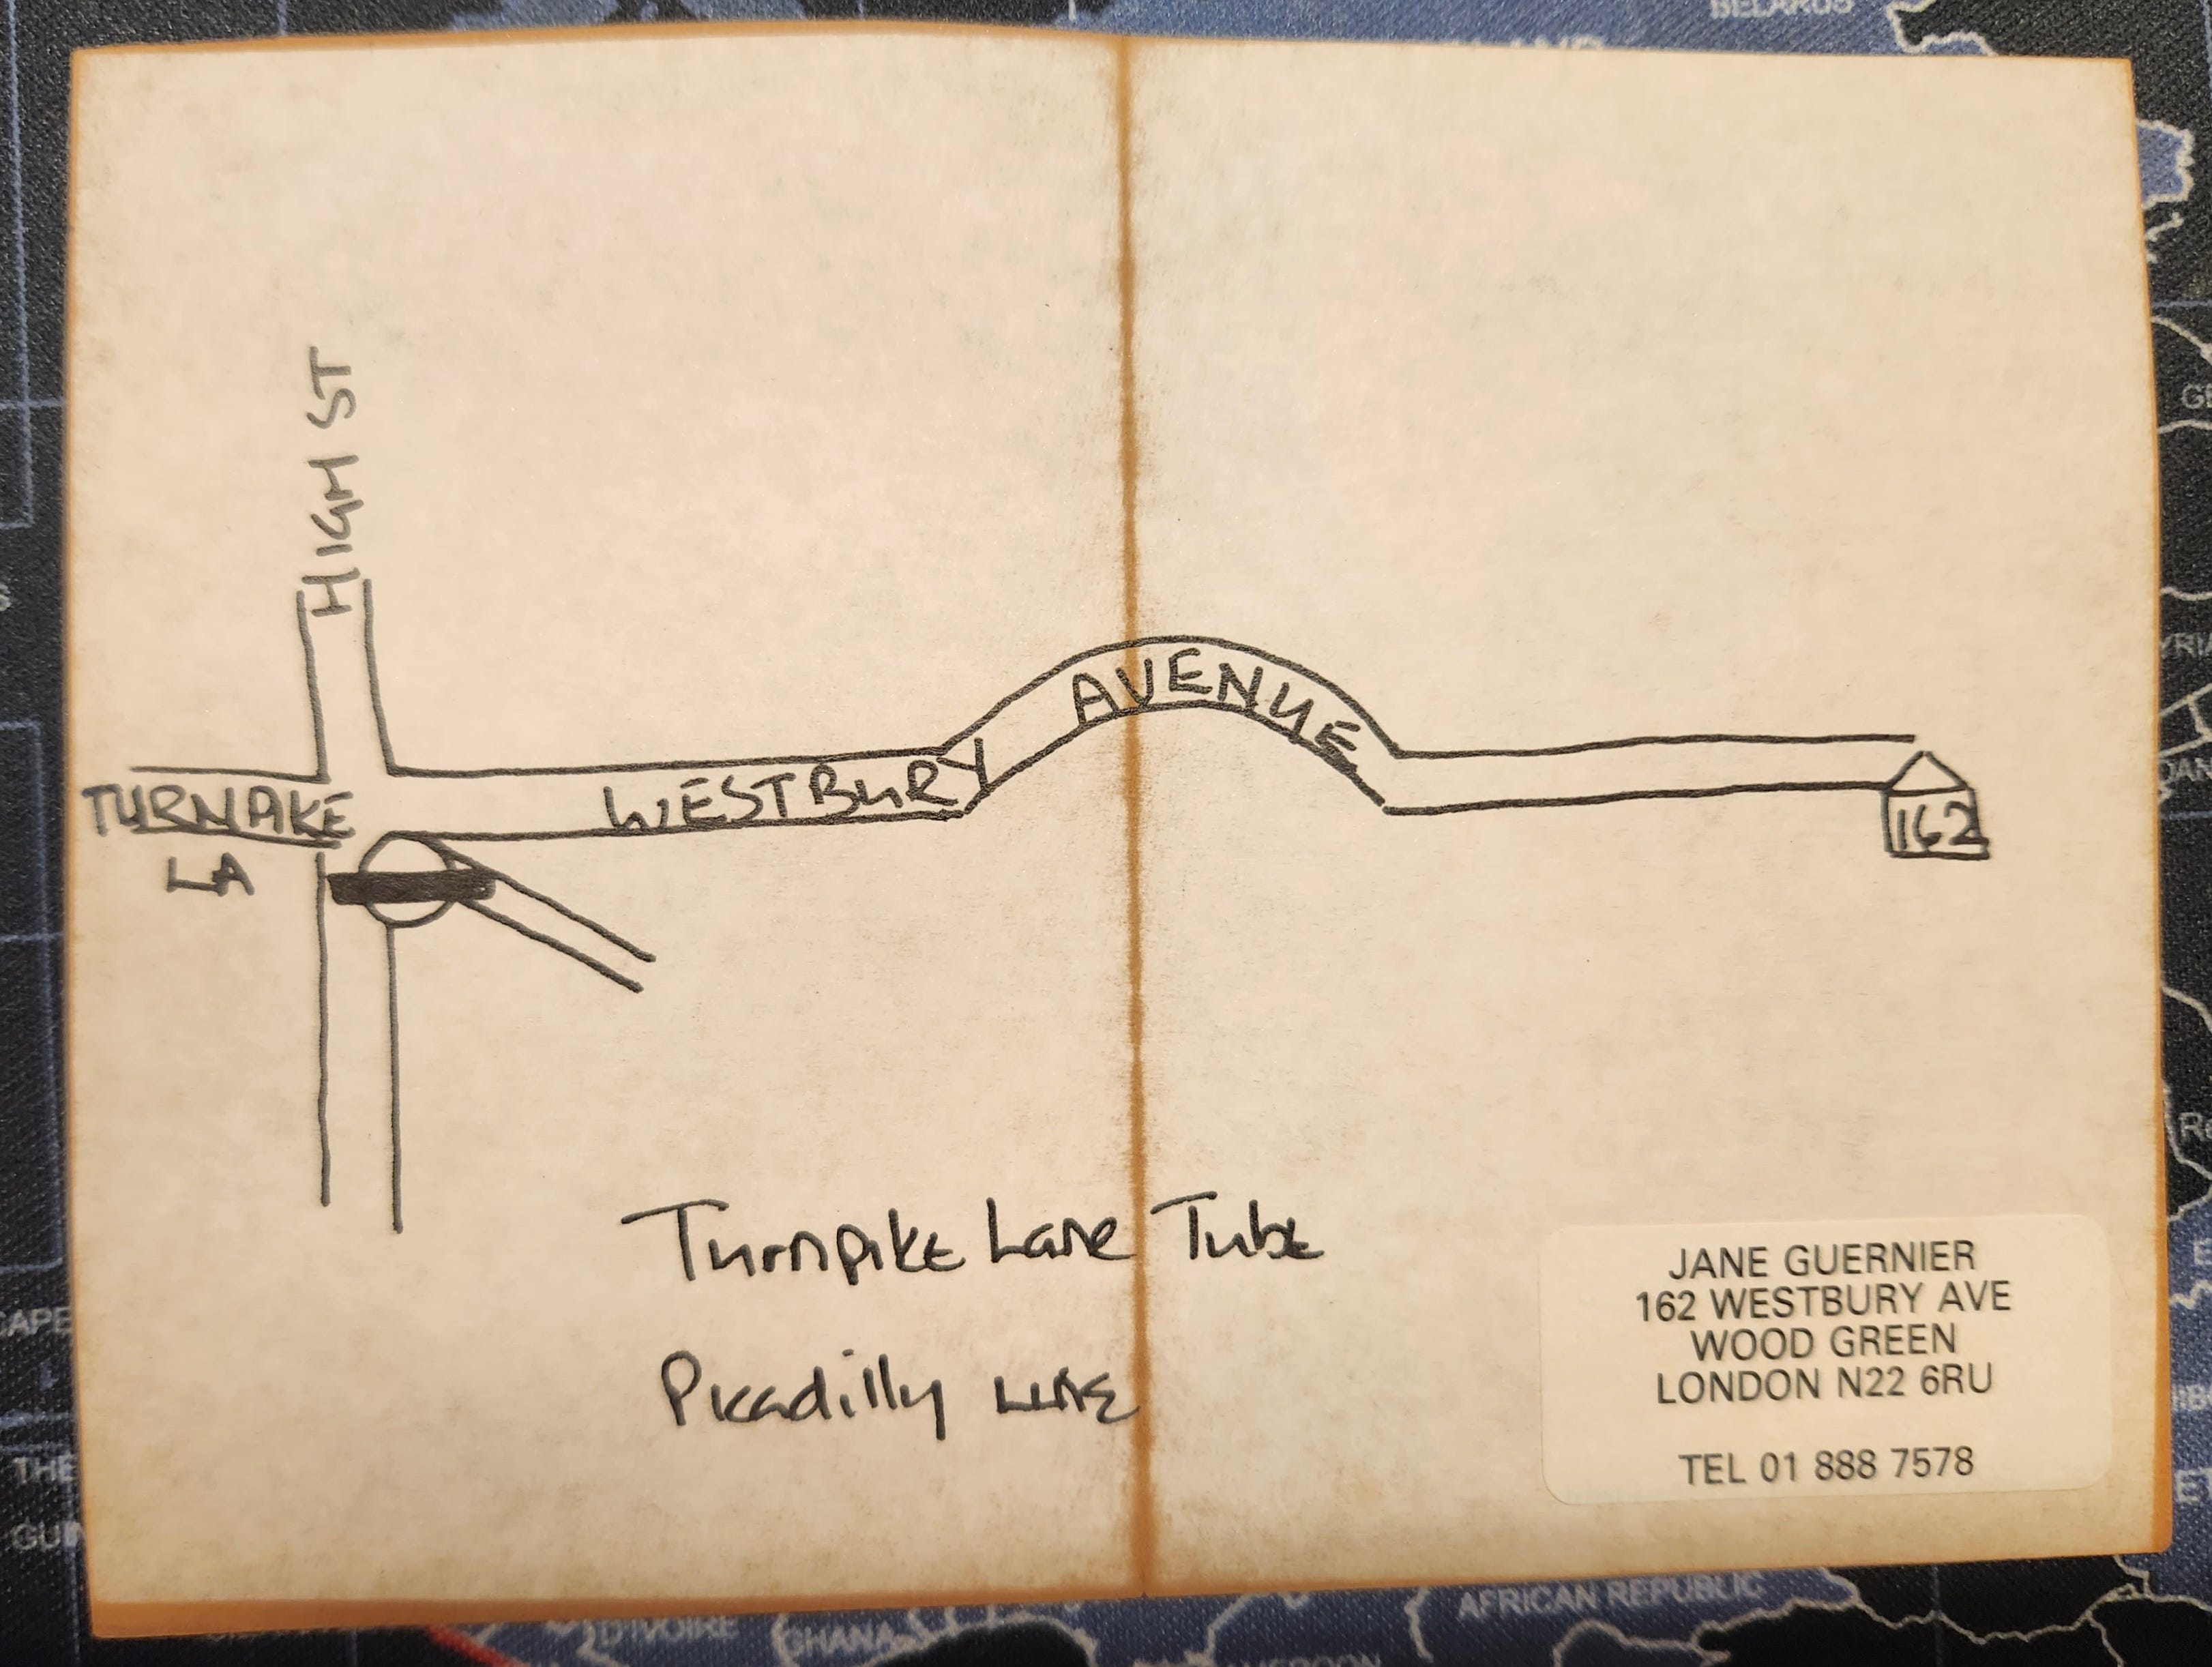 BELARUS
HIGH ST
AVENUE
WESTBURY
TURNPIKE
LA
162
Turnpike Lane Tube
Picadilly LINE
JANE GUERNIER
162 WESTBURY AVE
WOOD GREEN
LONDON N22 6RU
TEL 01 888 7578
AFRICAN REPUBLIC
D'IVOIRE
GHANA